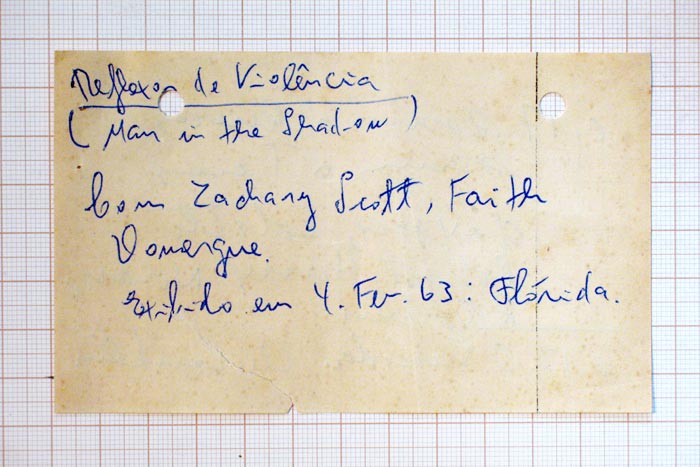 Reflexos de Violência
(Man in the Shadow)
Com Zachary Scott, Faith
Domergue.
Exibido em 4. Fev. 63: Flórida.